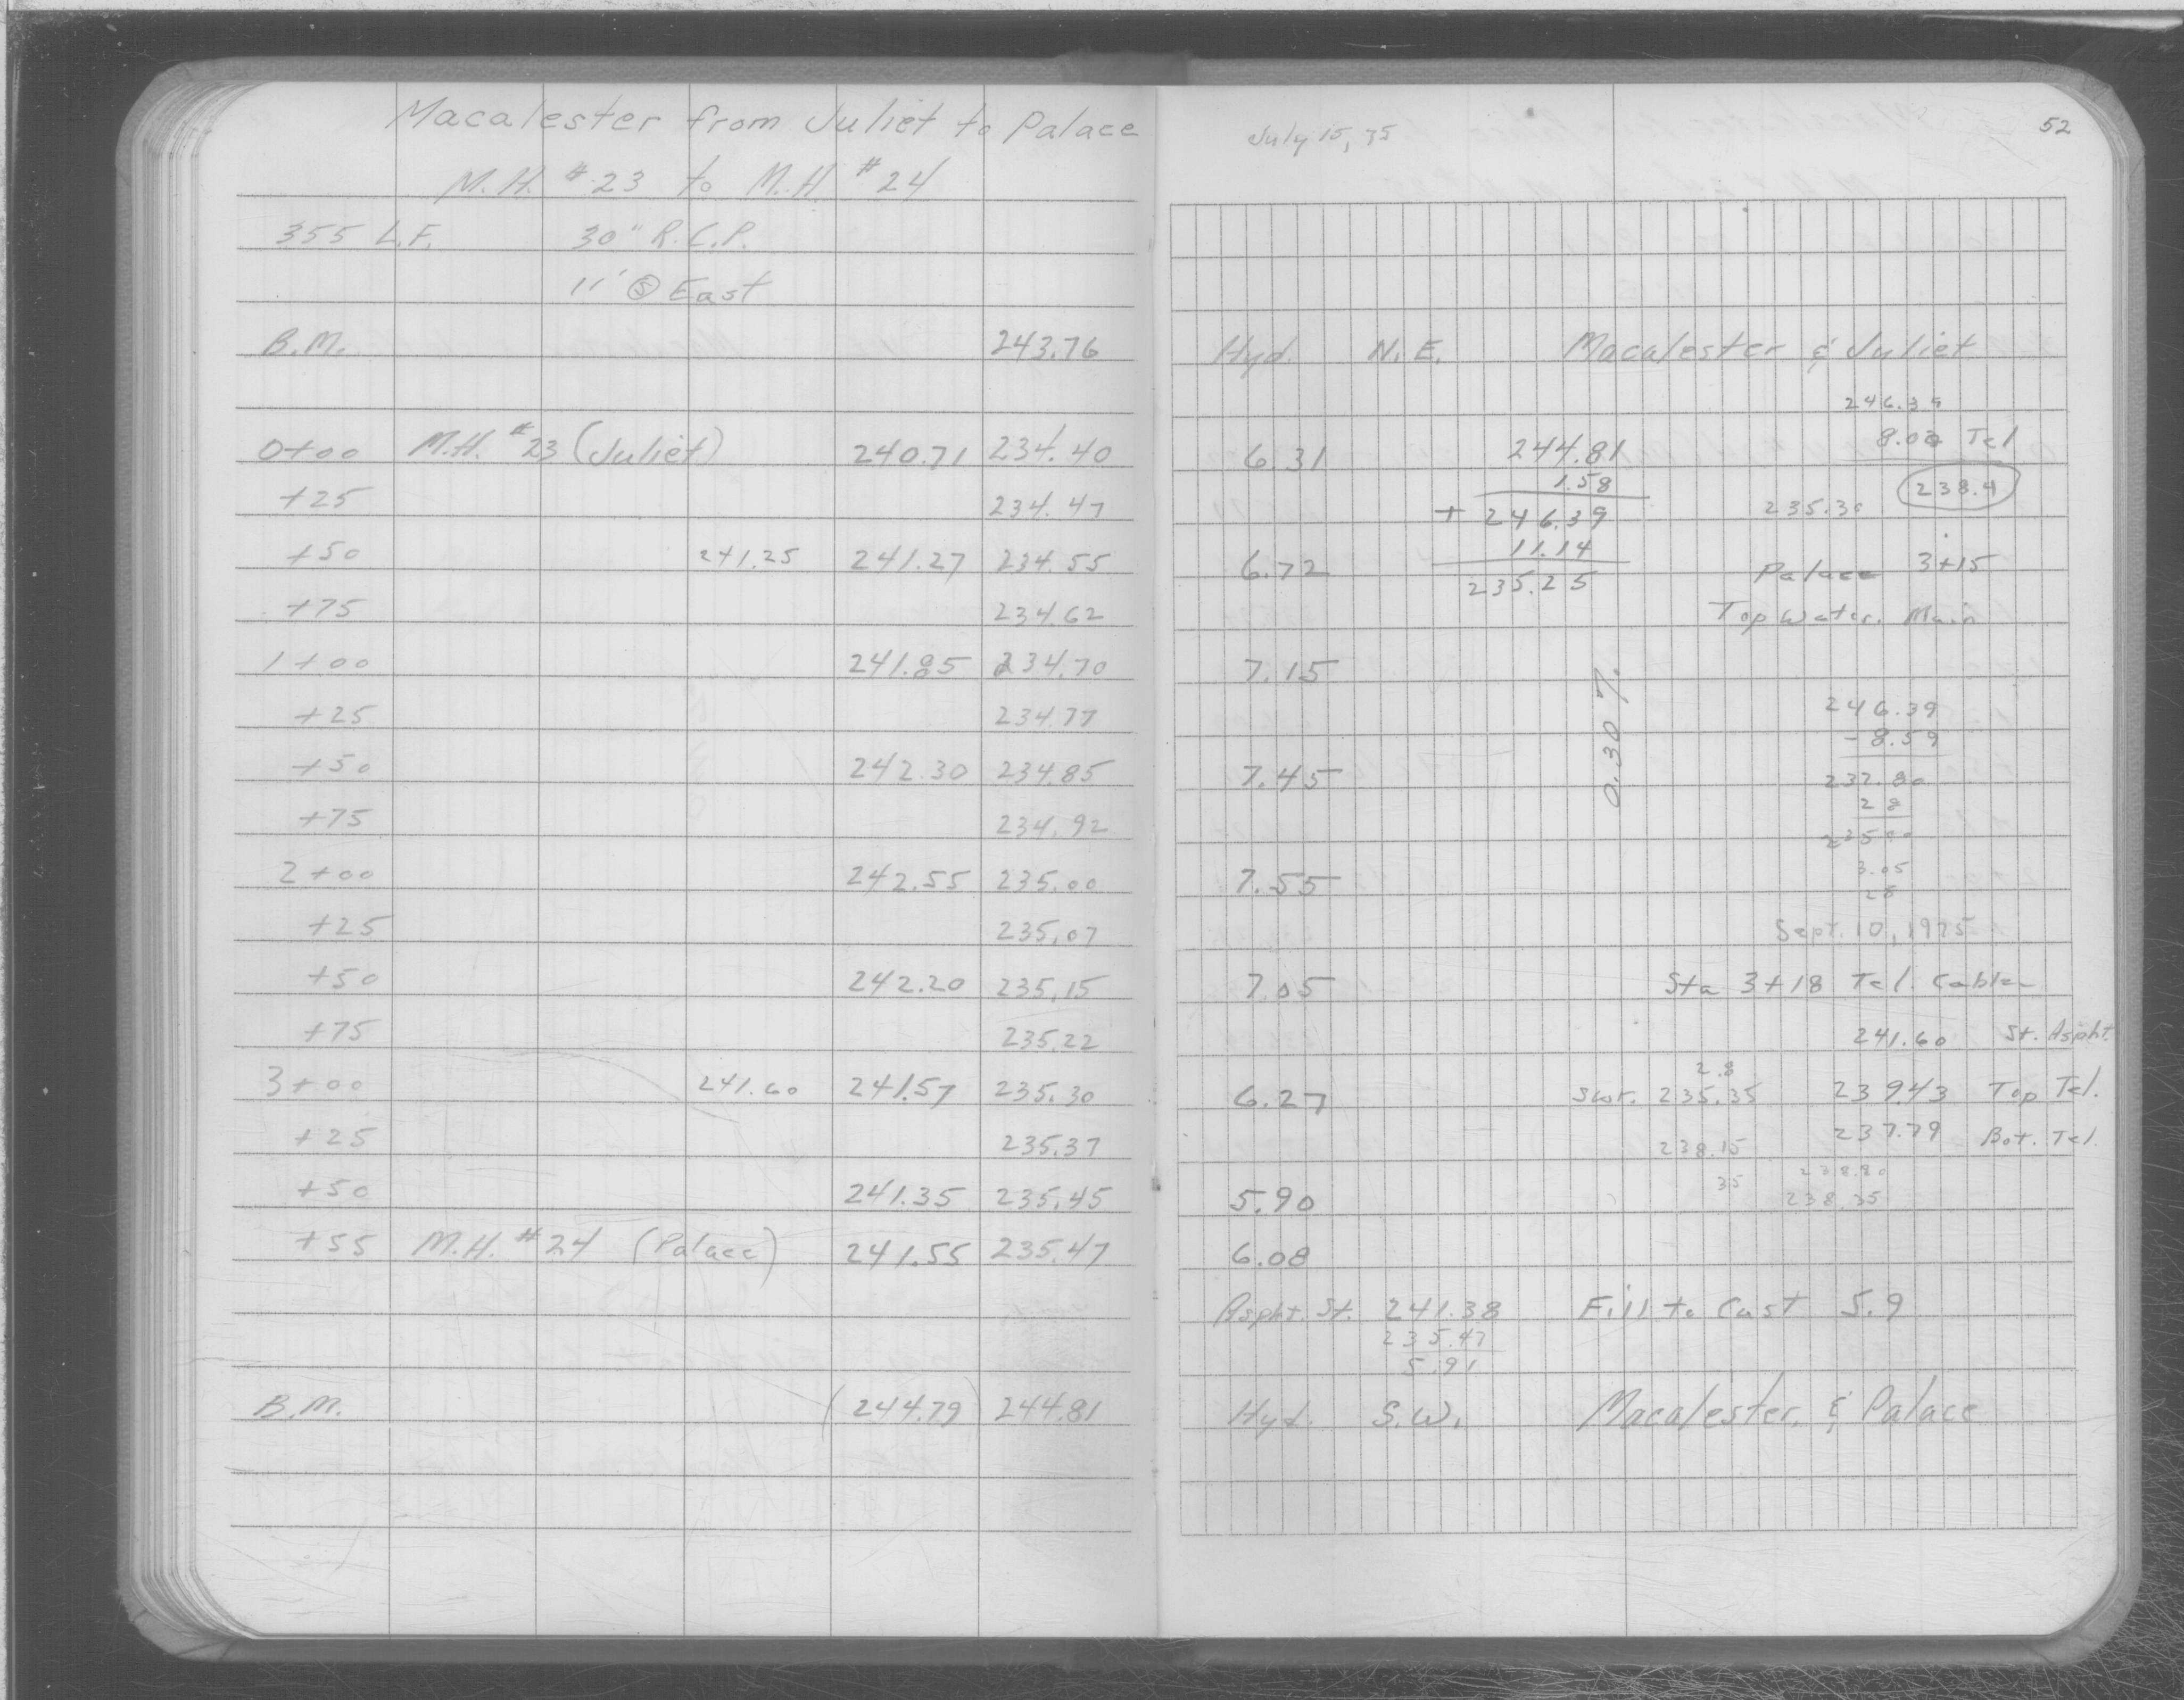 Macalester from Juliet to Palace
M.H. #23 to M.H. #24
355 L.F. 30" R.C.P.
11' Ⓢ East
B.M. 243.76
0+00 M.H. #23 (Juliet) 240.71 234.40
+25 234.47
+50 241.25 241.27 234.55
+75 234.62
1+00 241.85 234.70
+25 234.77
+50 242.30 234.85
+75 234.92
2+00 242.55 235.00
+25 235.07
+50 242.20 235.15
+75 235.22
3+00 241.60 241.57 235.30
+25 235.37
+50 241.35 235.45
+55 M.H. #24 (Palace) 241.55 235.47
B.M. (244.79) 244.81
52
July 15, 75
Hyd. N.E. Macalester & Juliet
246.39
6.31 244.81 8.00 Tel
1.58 238.4
+ 246.39 235.30
11.14
6.72 235.25 Palace 3+15
Top Water. Main
7.15
0.30 %
246.39
- 8.59
7.45 237.80
2 8
235 00
7.55 3.05
28
Sept. 10, 1975
7.05 Sta 3+18 Tel. Cable
241.60 St. Aspht.
2.8
6.27 Swr. 235.35 239.43 Top Tel.
238.15 237.79 Bot. Tel.
35 238.80
5.90 238.35
6.08
Aspht. St. 241.38 Fill to Cast 5.9
235.47
5.91
Hyd. S.W. Macalester. & Palace